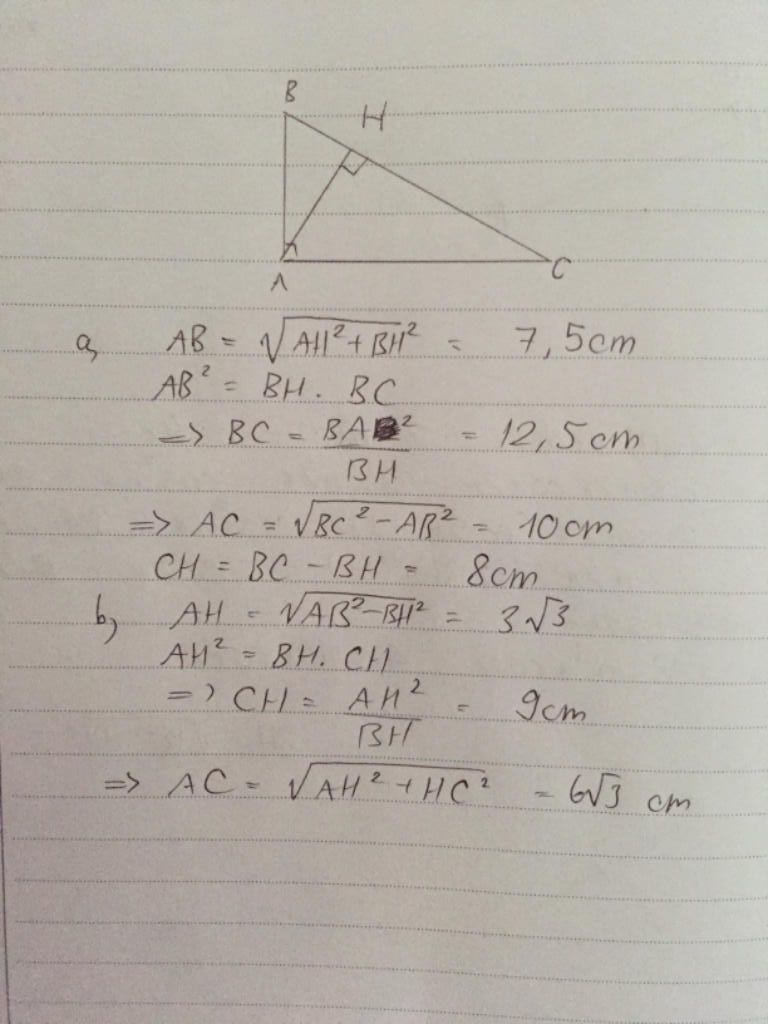 B
H
A
C
a, AB = √(AH² + BH²) = 7,5cm
AB² = BH . BC
=> BC = BA²/BH = 12,5cm
=> AC = √(BC² - AB²) = 10cm
CH = BC - BH = 8cm
b, AH = √(AB² - BH²) = 3√3
AH² = BH. CH
=> CH = AH²/BH = 9cm
=> AC = √(AH² + HC²) = 6√3 cm